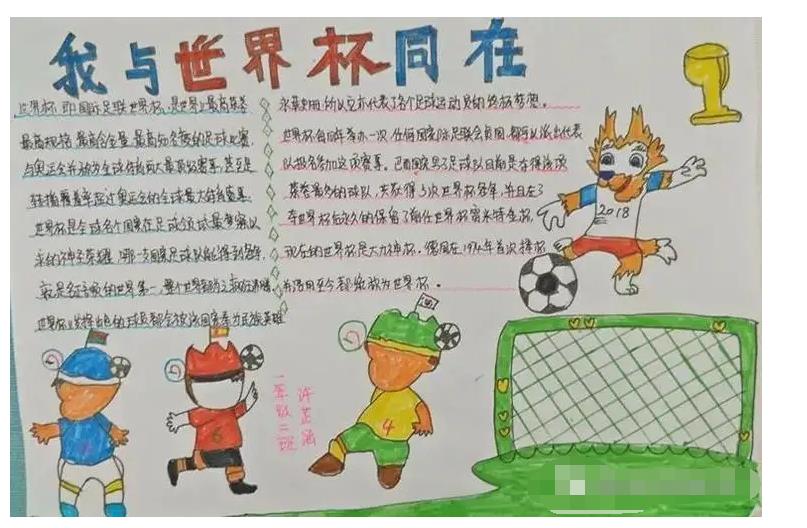 我与世界杯同在
世界杯即国际足联世界杯,是世界上最高荣誉
最高规格、最高含金量、最高知名度的足球比赛,
与奥运会并称为全球体育两大最顶级赛事,甚至是
转播覆盖率超过奥运会的全球最大体育盛事
世界杯是全球各个国家在足球领域最梦寐以
求的神圣荣耀,哪一支国家足球队能得到冠军,
就是名正言顺的世界第一,整个世界都会为之疯狂沸腾,
世界杯上发挥出色的球员都会被该国家奉为民族英雄
永载史册,所以它亦代表了各个足球运动员的终极梦想。
世界杯每四年举办一次,任何国家际足联会员国都可以派出代表
队报名参加这项赛事。巴西国家男子足球队目前是夺得该项
荣誉最多的球队,共获得5次世界杯冠军,并且在3
夺世界杯后永久的保留了前任世界杯雷米特金杯,
现在的世界杯是大力神杯,德国在1974年首次捧杯
并沿用至今都被称为世界杯。
2018
6
4
一年级二班